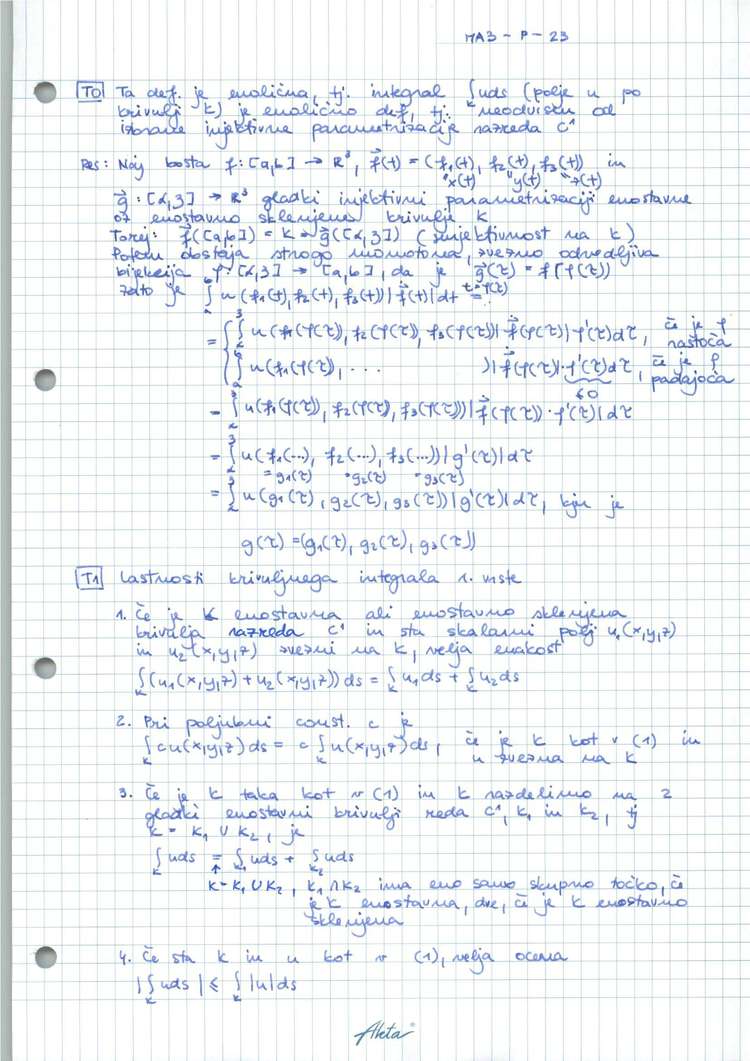 MA3 - P - 23
T0 Ta def. je enolična, tj. integral ∫_K uds (polje u po
krivulji K) je enolično def, tj. neodvisen od
izbrane injektivne parametrizacije razreda C¹
Res: Naj bosta f: [a,b] → R³, f⃗(t) = (f₁(t), f₂(t), f₃(t)) in
"x(t) "y(t) "z(t)
g⃗ : [α,β] → R³ gladki injektivni parametrizaciji enostavne
oz enostavno sklenjene krivulje K
Torej: f⃗([a,b]) = K = g⃗([α,β]) (surjektivnost na K)
Potem obstaja strogo monotona, zvezno odvedljiva
bijekcija φ: [α,β] → [a,b], da je g⃗(τ) = f(φ(τ))
zato je ∫_a^b u(f₁(t), f₂(t), f₃(t)) |ḟ⃗(t)| dt = t=φ(τ)
= { ∫_α^β u(f₁(φ(τ)), f₂(φ(τ)), f₃(φ(τ))) |ḟ⃗(φ(τ))| φ'(τ)dτ, če je φ
naštoča
∫ u(f₁(φ(τ)), ... )|ḟ⃗(φ(τ))|·φ'(τ)dτ, če je φ
padajoča
≤0
= ∫_α^β u(f₁(φ(τ)), f₂(φ(τ)), f₃(φ(τ))) |ḟ⃗(φ(τ))·φ'(τ)| dτ
= ∫_α^β u(f₁(...), f₂(...), f₃(...)) |g'(τ)| dτ
=g₁(τ) =g₂(τ) =g₃(τ)
= ∫_α^β u(g₁(τ), g₂(τ), g₃(τ)) |g'(τ)| dτ, kjer je
g(τ) = (g₁(τ), g₂(τ), g₃(τ))
T1 Lastnosti krivuljnega integrala 1. vrste
1. Če je K enostavna ali enostavno sklenjena
krivulja razreda C¹ in sta skalarni polji u₁(x,y,z)
in u₂(x,y,z) zvezni na K, velja enakost
∫_K (u₁(x,y,z) + u₂(x,y,z)) ds = ∫_K u₁ds + ∫_K u₂ds
2. Pri poljubni const. c je
∫_K cu(x,y,z) ds = c ∫_K u(x,y,z) ds, če je K kot v (1) in
u zvezna na K
3. Če je K taka kot v (1) in K razdelimo na 2
gladki enostavni krivulji reda C¹, K₁ in K₂, tj
K = K₁ ∪ K₂, je
∫_K uds = ∫_K₁ uds + ∫_K₂ uds
↑
K=K₁ ∪ K₂, K₁ ∩ K₂ ima eno samo skupno točko, če
je K enostavna, dve, če je K enostavno
sklenjena
4. Če sta K in u kot v (1), velja ocena
|∫_K uds| ≤ ∫_K |u|ds
Akta